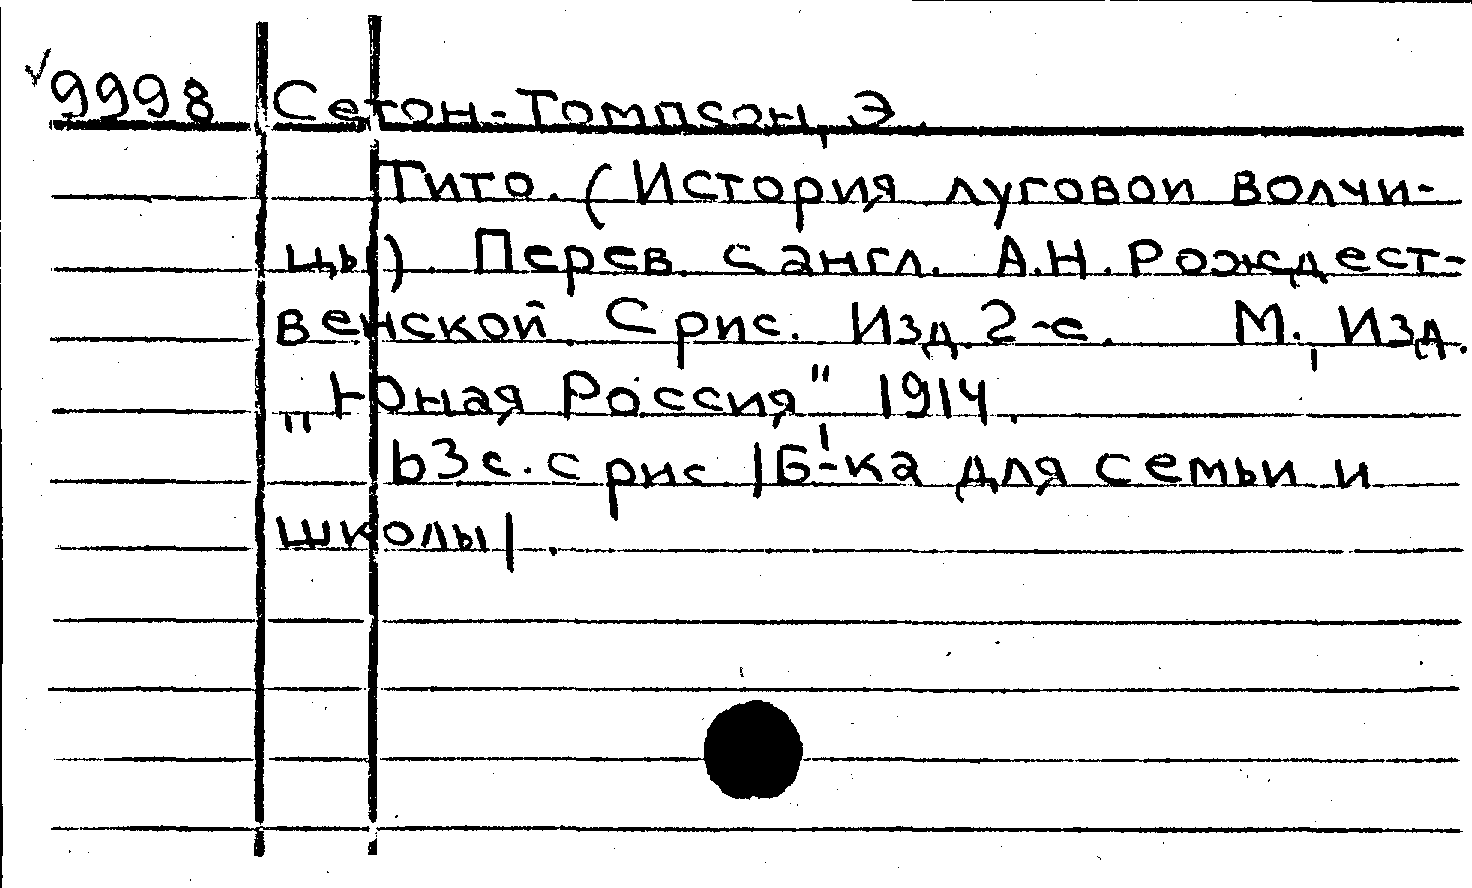 ✓9998 Сетон-Томпсон, Э.
Тито. (История луговои волчи-
цы). Перев. с англ. А.Н. Рождест-
венской. С рис. Изд. 2-е. М., Изд.
„Юная Россия" 1914.
63 с. с рис. |Б-ка для семьи и
школы|.